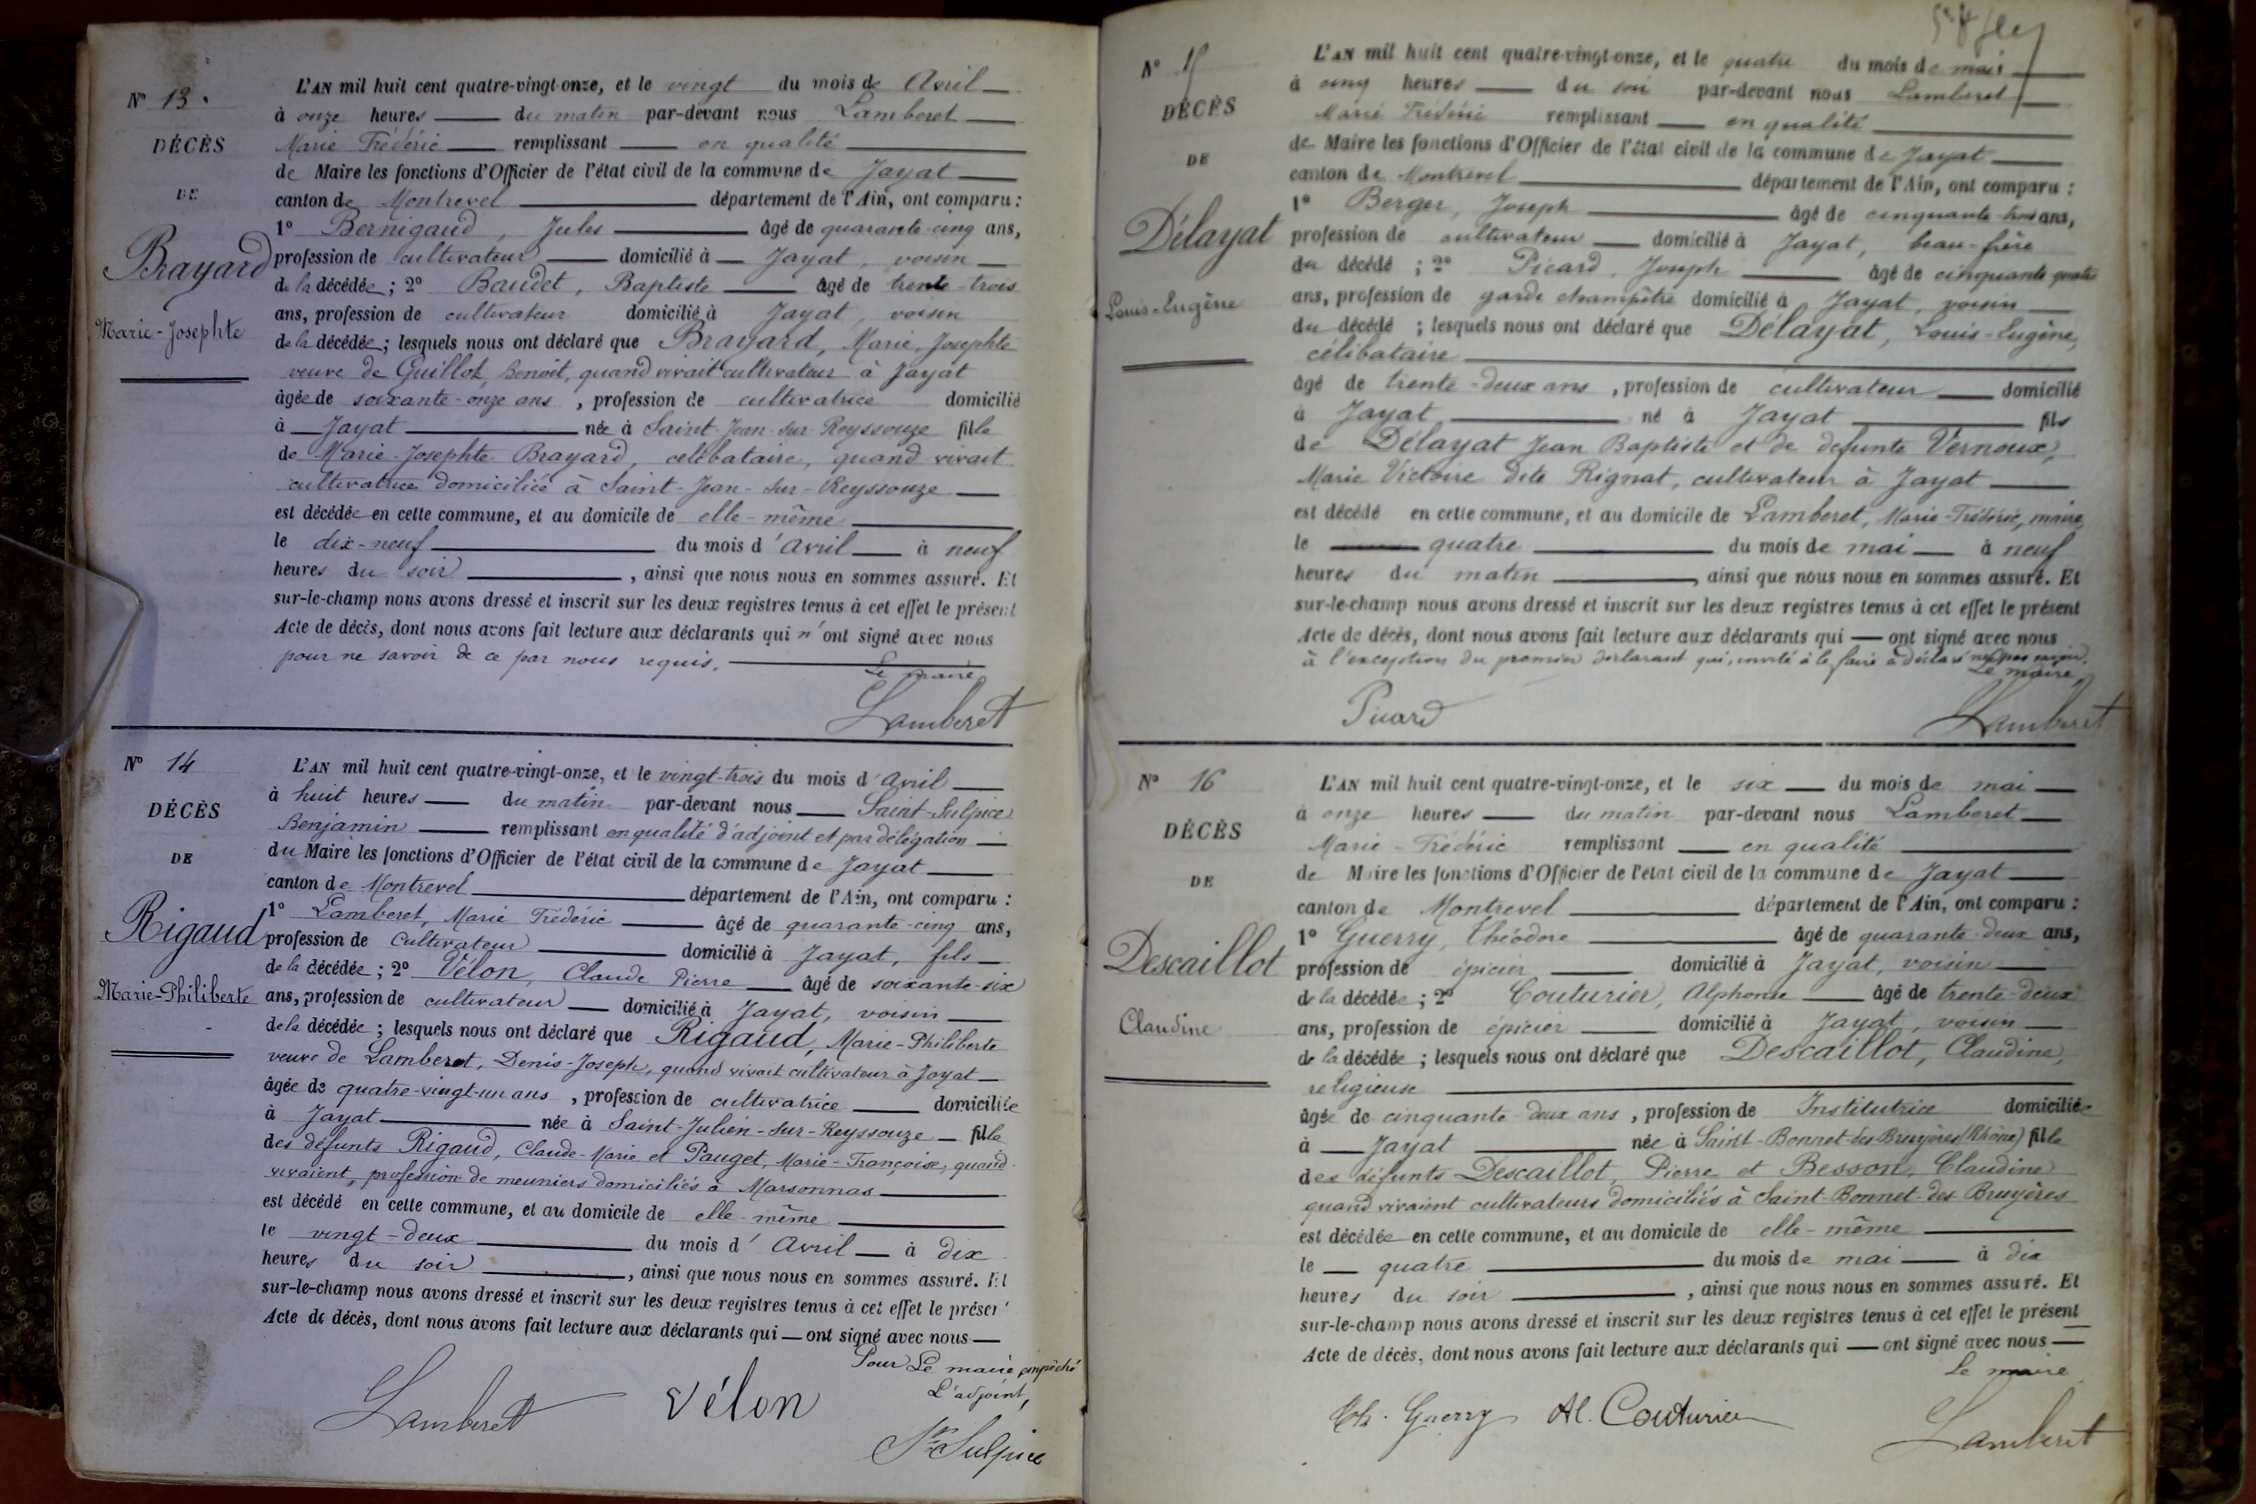 Nº 13.
DÉCÈS
DE
Brayard
Marie-Josephte
L'AN mil huit cent quatre-vingt-onze, et le vingt du mois de Avril
à onze heures du matin par-devant nous Lamberet
Marie Frédéric remplissant en qualité
de Maire les fonctions d'Officier de l'état civil de la commune de Jayat
canton de Montrevel département de l'Ain, ont comparu :
1º Bernigaud, Jules âgé de quarante-cinq ans,
profession de cultivateur domicilié à Jayat, voisin
de la décédée ; 2º Baudet, Baptiste âgé de trente-trois
ans, profession de cultivateur domicilié à Jayat, voisin
de la décédée ; lesquels nous ont déclaré que Brayard, Marie-Josephte
veuve de Guillot, Benoit, quand vivait cultivateur à Jayat
âgée de soixante-onze ans, profession de cultivatrice domicilié
à Jayat née à Saint-Jean-sur-Reyssouze fille
de Marie-Josephte Brayard, célibataire, quand vivait
cultivatrice domiciliée à Saint-Jean-sur-Reyssouze
est décédée en cette commune, et au domicile de elle-même
le dix-neuf du mois d'Avril à neuf
heures du soir, ainsi que nous nous en sommes assuré. Et
sur-le-champ nous avons dressé et inscrit sur les deux registres tenus à cet effet le présent
Acte de décès, dont nous avons fait lecture aux déclarants qui n'ont signé avec nous
pour ne savoir de ce par nous requis.
Le maire
Lamberet
Nº 14
DÉCÈS
DE
Rigaud
Marie-Philiberte
L'AN mil huit cent quatre-vingt-onze, et le vingt-trois du mois d'Avril
à huit heures du matin par-devant nous Saint-Sulpice
Benjamin remplissant en qualité d'adjoint et par délégation
du Maire les fonctions d'Officier de l'état civil de la commune de Jayat
canton de Montrevel département de l'Ain, ont comparu :
1º Lamberet, Marie Frédéric âgé de quarante-cinq ans,
profession de cultivateur domicilié à Jayat, fils
de la décédée ; 2º Vélon, Claude Pierre âgé de soixante-six
ans, profession de cultivateur domicilié à Jayat, voisin
de la décédée ; lesquels nous ont déclaré que Rigaud, Marie-Philiberte
veuve de Lamberet, Denis-Joseph, quand vivait cultivateur à Jayat
âgée de quatre-vingt-un ans, profession de cultivatrice domiciliée
à Jayat née à Saint-Julien-sur-Reyssouze fille
des défunts Rigaud, Claude-Marie et Pauget, Marie-Françoise, quand
vivaient, profession de meuniers domiciliés à Marsonnas
est décédé en cette commune, et au domicile de elle-même
le vingt-deux du mois d'Avril à dix
heures du soir, ainsi que nous nous en sommes assuré. Et
sur-le-champ nous avons dressé et inscrit sur les deux registres tenus à cet effet le présen
Acte de décès, dont nous avons fait lecture aux déclarants qui ont signé avec nous
Pour Le maire empêché
L'adjoint,
Lamberet Vélon
St Sulpice
Nº 15
DÉCÈS
DE
Délayat
Louis-Eugène
L'AN mil huit cent quatre-vingt-onze, et le quatre du mois de mai
à cinq heures du soir par-devant nous Lamberet
Marie Frédéric remplissant en qualité
de Maire les fonctions d'Officier de l'état civil de la commune de Jayat
canton de Montrevel département de l'Ain, ont comparu :
1º Berger, Joseph âgé de cinquante-trois ans,
profession de cultivateur domicilié à Jayat, beau-frère
du décédé ; 2º Picard, Joseph âgé de cinquante quatre
ans, profession de garde champêtre domicilié à Jayat, voisin
du décédé ; lesquels nous ont déclaré que Délayat, Louis-Eugène,
célibataire
âgé de trente-deux ans, profession de cultivateur domicilié
à Jayat né à Jayat fils
de Délayat Jean Baptiste et de defunte Vernoux,
Marie Victoire dite Rignat, cultivateur à Jayat
est décédé en cette commune, et au domicile de Lamberet, Marie-Frédéric, maire,
le quatre du mois de mai à neuf
heures du matin, ainsi que nous nous en sommes assuré. Et
sur-le-champ nous avons dressé et inscrit sur les deux registres tenus à cet effet le présent
Acte de décès, dont nous avons fait lecture aux déclarants qui ont signé avec nous
à l'exception du premier déclarant qui, invité à le faire a déclaré ne pas savoir.
Le maire,
Picard Lamberet
Nº 16
DÉCÈS
DE
Descaillot
Claudine
L'AN mil huit cent quatre-vingt-onze, et le six du mois de mai
à onze heures du matin par-devant nous Lamberet
Marie-Frédéric remplissant en qualité
de Maire les fonctions d'Officier de l'état civil de la commune de Jayat
canton de Montrevel département de l'Ain, ont comparu :
1º Guerry, Théodore âgé de quarante-deux ans,
profession de épicier domicilié à Jayat, voisin
de la décédée ; 2º Couturier, Alphonse âgé de trente-deux
ans, profession de épicier domicilié à Jayat, voisin
de la décédée ; lesquels nous ont déclaré que Descaillot, Claudine,
religieuse
âgée de cinquante-deux ans, profession de Institutrice domiciliée
à Jayat née à Saint-Bonnet-des-Bruyères (Rhône) fille
des défunts Descaillot, Pierre et Besson, Claudine
quand vivaient cultivateurs domiciliés à Saint-Bonnet-des Bruyères
est décédée en cette commune, et au domicile de elle-même
le quatre du mois de mai à dix
heures du soir, ainsi que nous nous en sommes assuré. Et
sur-le-champ nous avons dressé et inscrit sur les deux registres tenus à cet effet le présent
Acte de décès, dont nous avons fait lecture aux déclarants qui ont signé avec nous
Le maire
Th. Guerry Al. Couturier
Lamberet